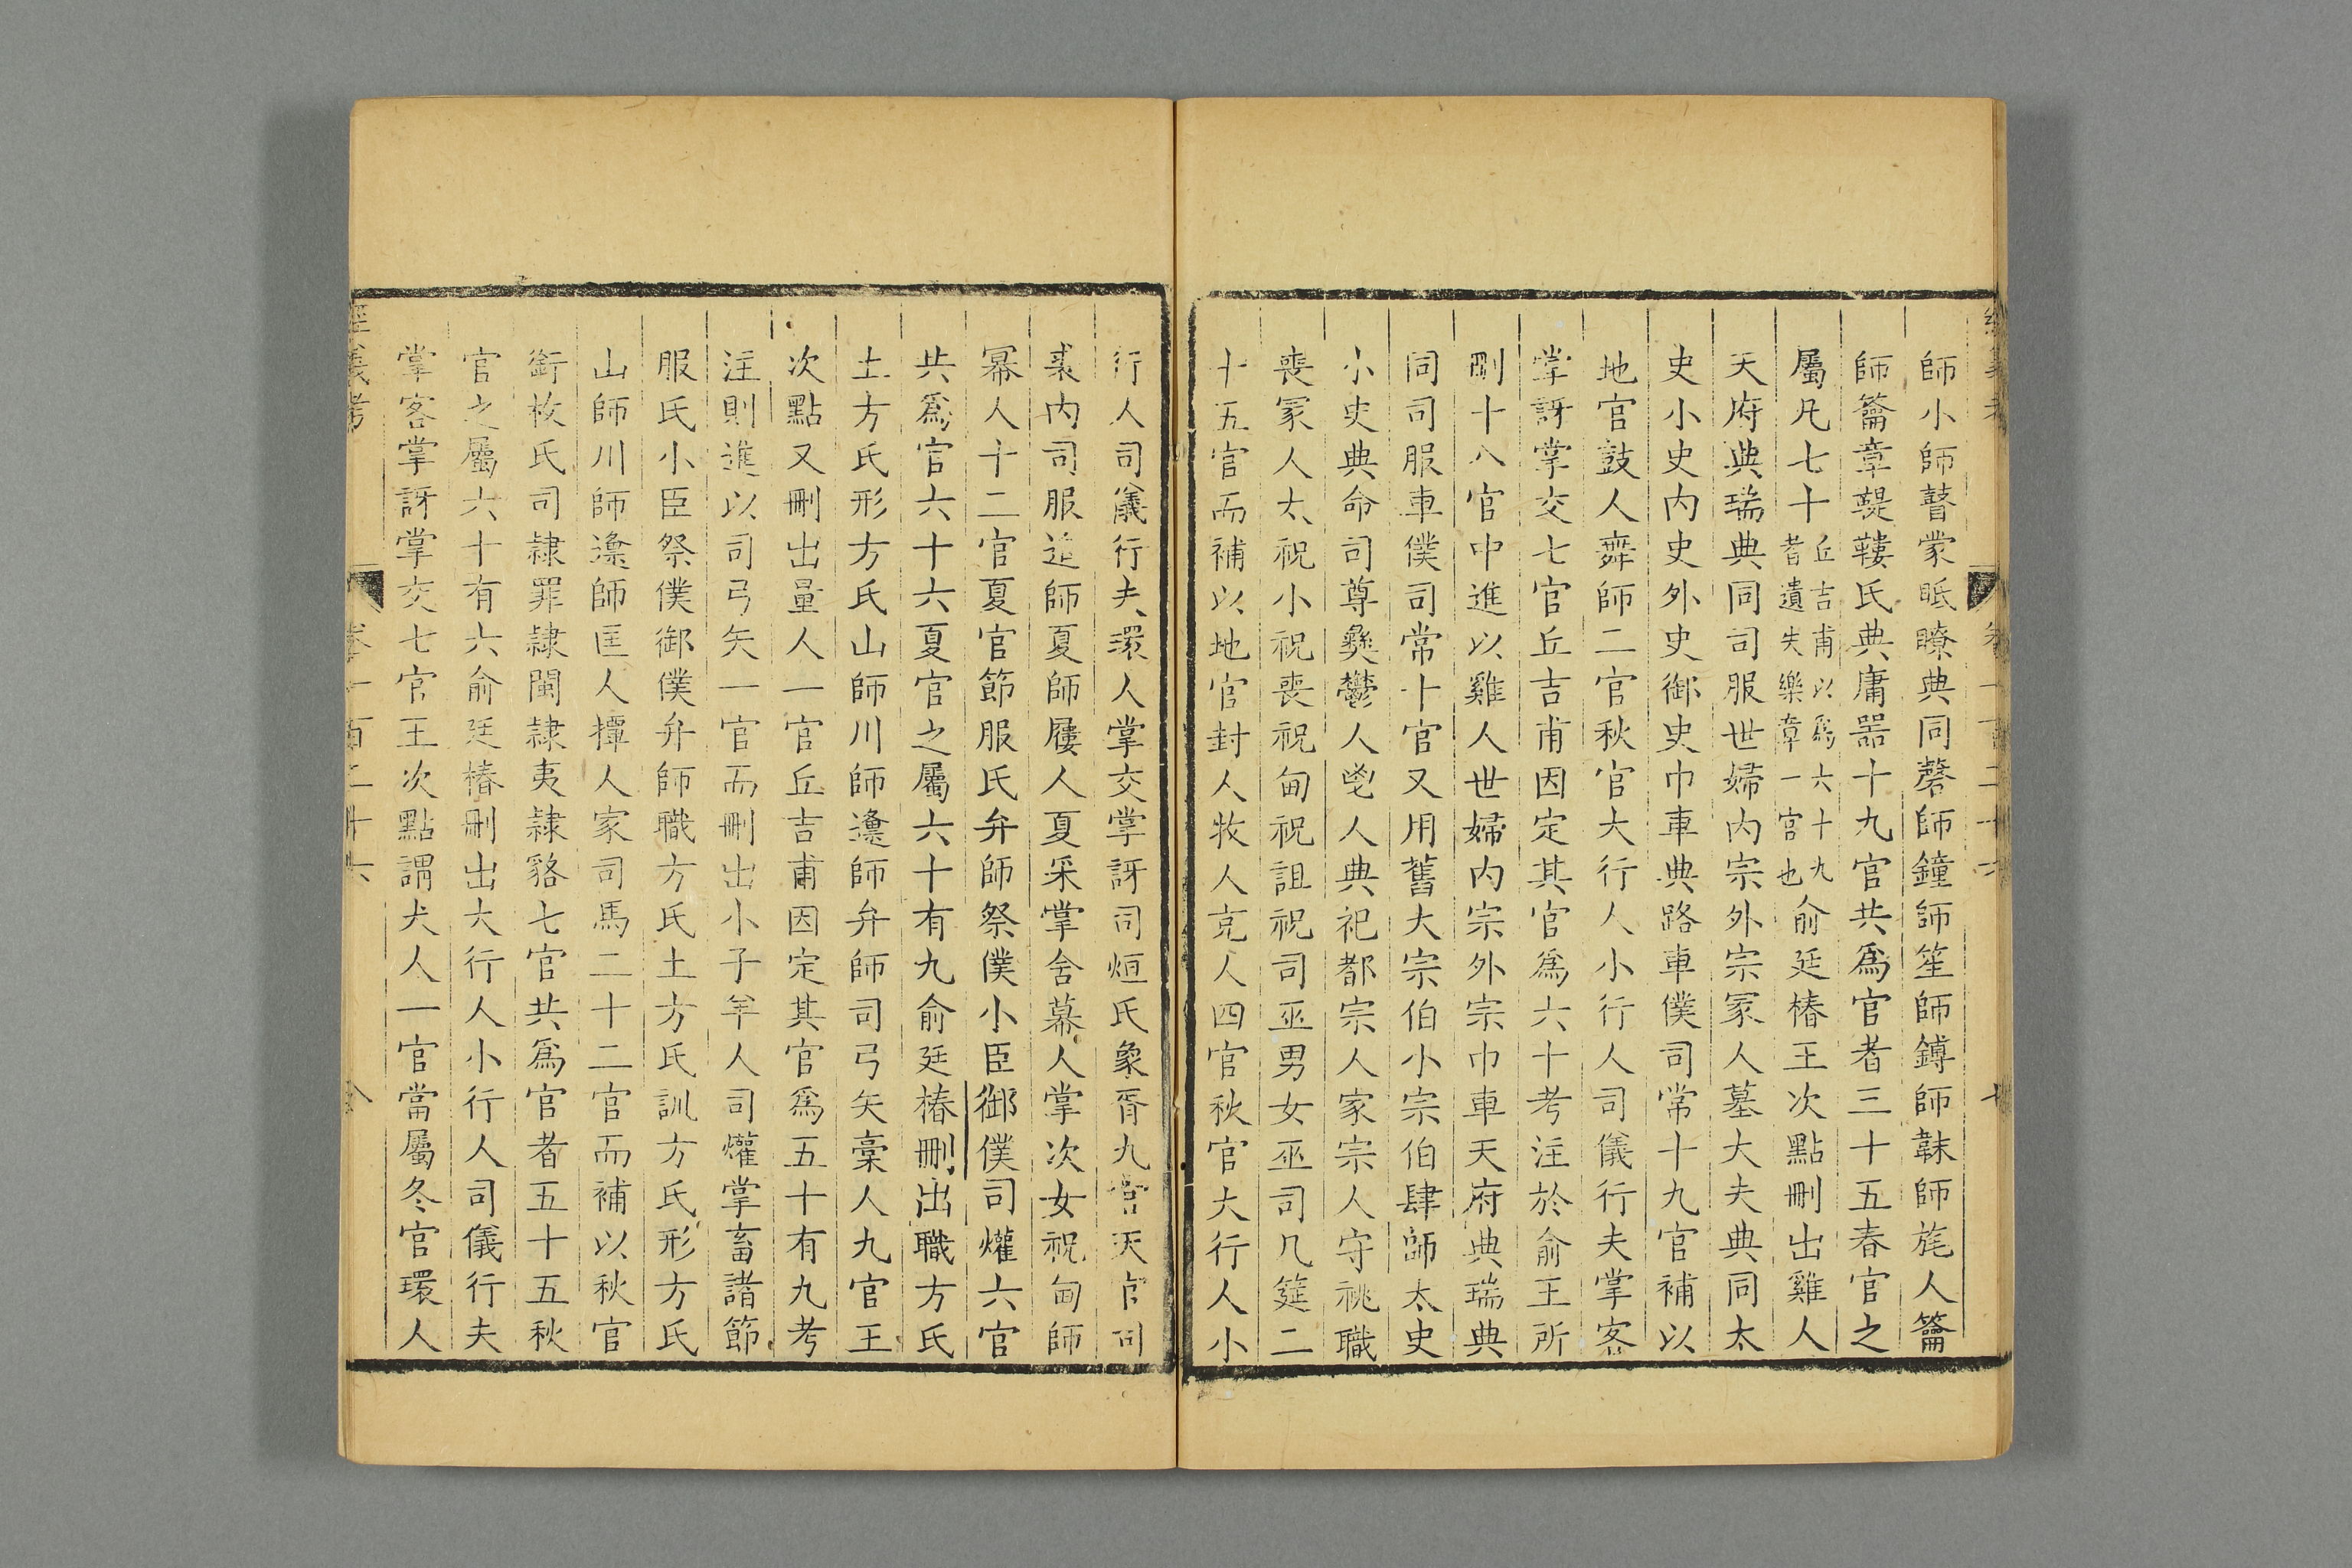 師小師瞽蒙眡瞭典同磬師鐘師笙師鎛師韎師旄人籥
師籥章鞮鞻氏典庸器十九官共爲官者三十五春官之
屬凡七十丘吉甫以爲六十九者遺失樂章一官也俞廷椿王次點刪出雞人
天府典瑞典同司服世婦內宗外宗冢人墓大夫典同太
史小史內史外史御史巾車典路車僕司常十九官補以
地官鼓人舞師二官秋官大行人小行人司儀行夫掌客
掌訝掌交七官丘吉甫因定其官爲六十考注於俞王所
刪十八官中進以雞人世婦內宗外宗巾車天府典瑞典
同司服車僕司常十官又用舊大宗伯小宗伯肆師太史
小史典命司尊彝鬱人鬯人典祀都宗人家宗人守祧職
喪冢人大祝小祝喪祝甸祝詛祝司巫男女巫司几筵二
十五官而補以地官封人牧人充人四官秋官大行人小
行人司儀行夫環人掌交掌訝司烜氏象胥九官天官司
裘內司服追師夏師屨人夏采掌舍幕人掌次女祝甸師
冪人十二官夏官節服氏弁師祭僕小臣御僕司爟六官
共爲官六十六夏官之屬六十有九俞廷椿刪出職方氏
土方氏形方氏山師川師邍師弁師司弓矢槀人九官王
次點又刪出量人一官丘吉甫因定其官爲五十有九考
注則進以司弓矢一官而刪出小子羊人司爟掌畜諸節
服氏小臣祭僕御僕弁師職方氏土方氏訓方氏形方氏
山師川師邍師匡人撢人家司馬二十二官而補以秋官
銜枚氏司隷罪隷閩隷夷隷貉七官共爲官者五十五秋
官之屬六十有六俞廷椿刪出大行人小行人司儀行夫
掌客掌訝掌交七官王次點謂犬人一官當屬冬官環人
經義考
卷一百二十六